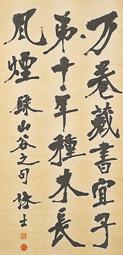 万卷藏書宜子
弟十年種木長
風煙 錄山谷之句